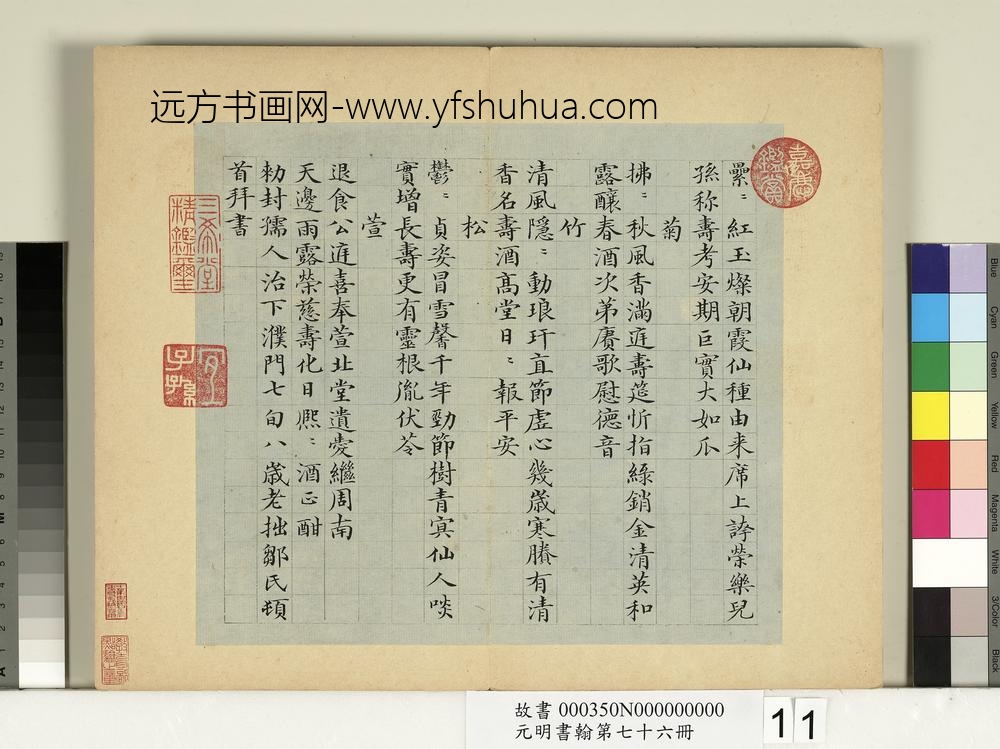 远方书画网-www.yfshuhua.com
纍〻紅玉燦朝霞仙種由来席上誇榮樂兒
孫称壽考安期巨實大如瓜
菊
拂〻秋風香滿庭壽筵忻指綠銷金清英和
露釀春酒次第賡歌慰德音
竹
清風隱〻動琅玕直節虛心幾歲寒賸有清
香名壽酒髙堂日〻報平安
松
鬱〻貞姿冒雪馨千年勁節樹青寘仙人啖
實增長壽更有靈根胤伏苓
萱
退食公庭喜奉萱北堂遺愛繼周南
天邊雨露榮慈壽化日熈〻酒正酣
勅封孺人治下濮門七旬八歲老拙鄒氏頓
首拜書
嘉慶鑑賞
三希堂精鑑璽
宜子孫
故書 000350N000000000
元明書翰第七十六冊
11
Blue
Cyan
Green
Yellow
Red
Magenta
White
3/Color
Black